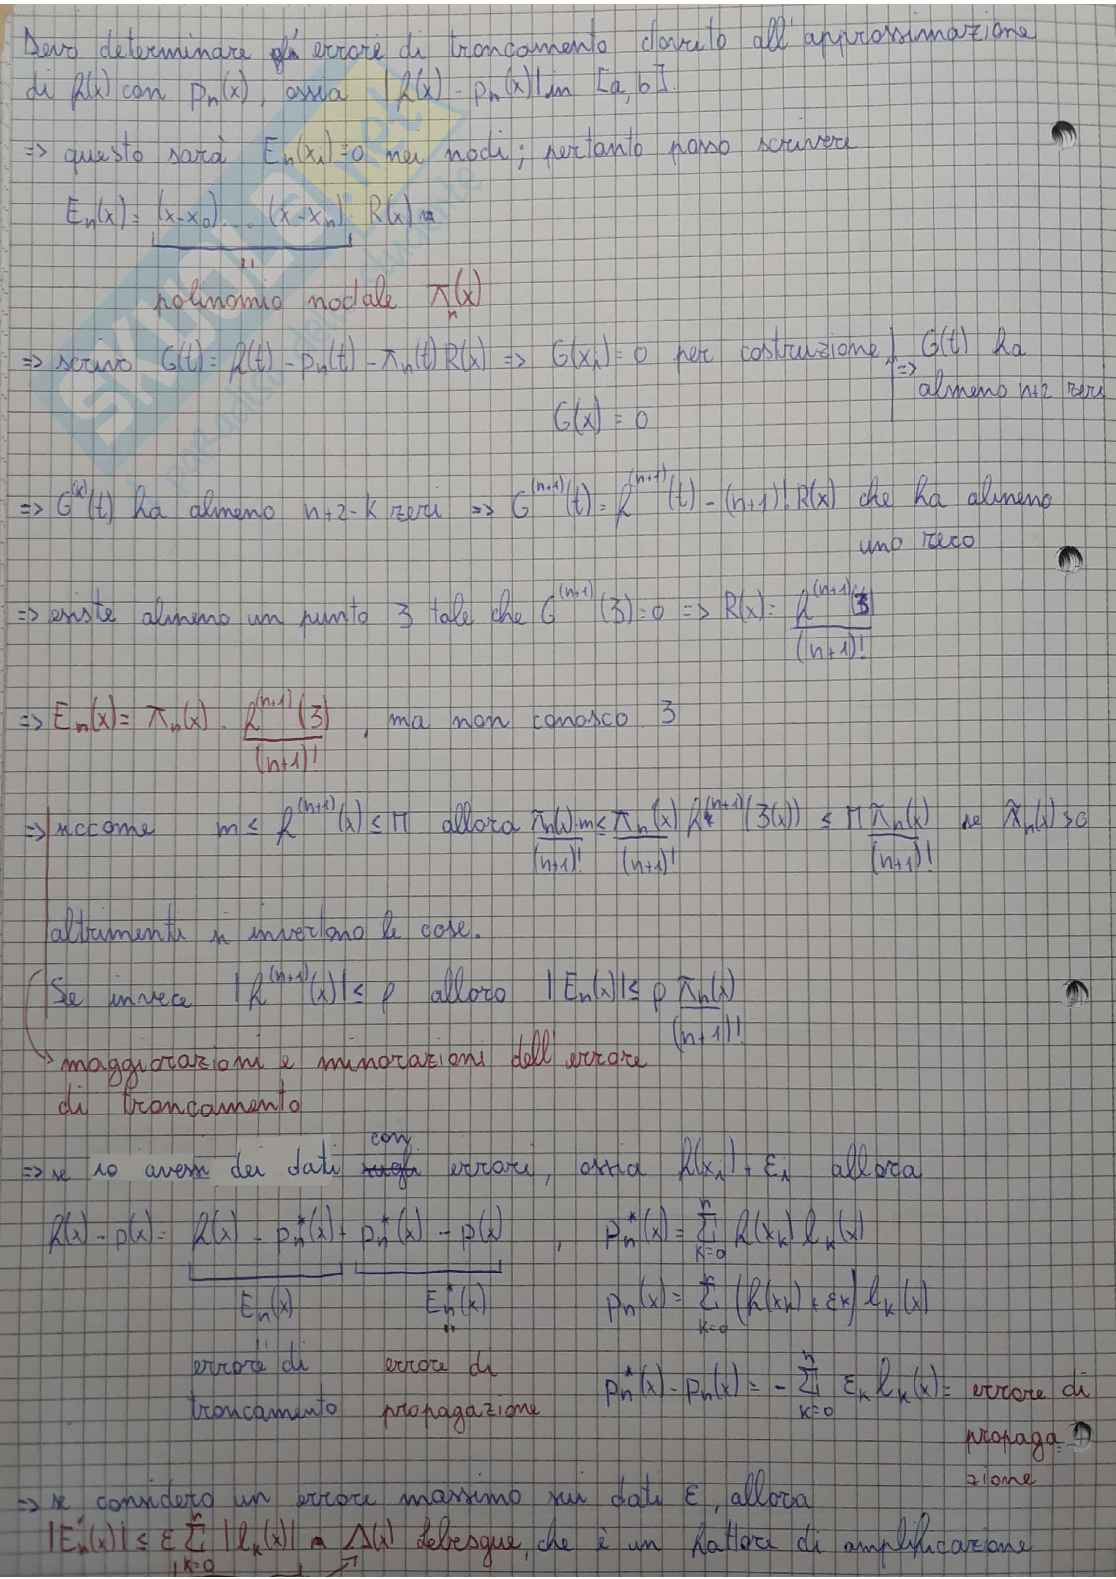 Devo determinare gli errori di troncamento dovuto all'approssimazione
di f(x) con pₙ(x), ossia |f(x) - pₙ(x)| in [a,b].
=> questo sarà Eₙ(xᵢ)=0 nei nodi; pertanto posso scrivere
Eₙ(x) = (x-x₀)...(x-xₙ) R(x)
polinomio nodale πₙ(x)
=> scrivo G(t) = f(t) - pₙ(t) - πₙ(t)R(x) => G(xᵢ) = 0 per costruzione | => G(t) ha
G(x) = 0
almeno n+2 zeri
=> G⁽ᵏ⁾(t) ha almeno n+2-k zeri => G⁽ⁿ⁺¹⁾(t) = f⁽ⁿ⁺¹⁾(t) - (n+1)! R(x) che ha almeno
uno zero
=> esiste almeno un punto ξ tale che G⁽ⁿ⁺¹⁾(ξ)=0 => R(x) = f⁽ⁿ⁺¹⁾(ξ)/(n+1)!
=> Eₙ(x) = πₙ(x) · f⁽ⁿ⁺¹⁾(ξ)/(n+1)! , ma non conosco ξ
=> siccome m ≤ f⁽ⁿ⁺¹⁾(x) ≤ M allora πₙ(x)·m/(n+1)! ≤ πₙ(x)/(n+1)! f⁽ⁿ⁺¹⁾(ξ(x)) ≤ M πₙ(x)/(n+1)! se πₙ(x)>0
altrimenti si invertono le cose.
Se invece |f⁽ⁿ⁺¹⁾(x)| ≤ ρ allora |Eₙ(x)| ≤ ρ πₙ(x)/(n+1)!
maggiorazioni e minorazioni dell'errore
di troncamento
=> se io avessi dei dati con errori, ossia f(xᵢ) + εᵢ allora
f(x) - p(x) = f(x) - pₙ*(x) + pₙ*(x) - p(x) , pₙ*(x) = Σₖ₌₀ⁿ f(xₖ) lₖ(x)
Eₙ(x) Eₙ*(x) pₙ(x) = Σₖ₌₀ (f(xₖ) + εₖ) lₖ(x)
errore di errore di pₙ*(x) - pₙ(x) = - Σₖ₌₀ⁿ εₖ lₖ(x) = errore di
troncamento propagazione
propaga
zione
=> se considero un errore massimo sui dati ε, allora
|Eₙ*(x)| ≤ ε Σₖ₌₀ⁿ |lₖ(x)| Λ(x) Lebesgue, che è un fattore di amplificazione
SKUOLA.net